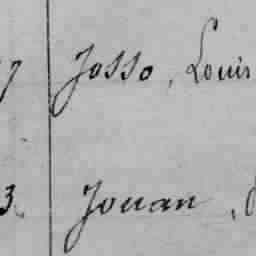 7 Josso, Louis
3. Jouan,